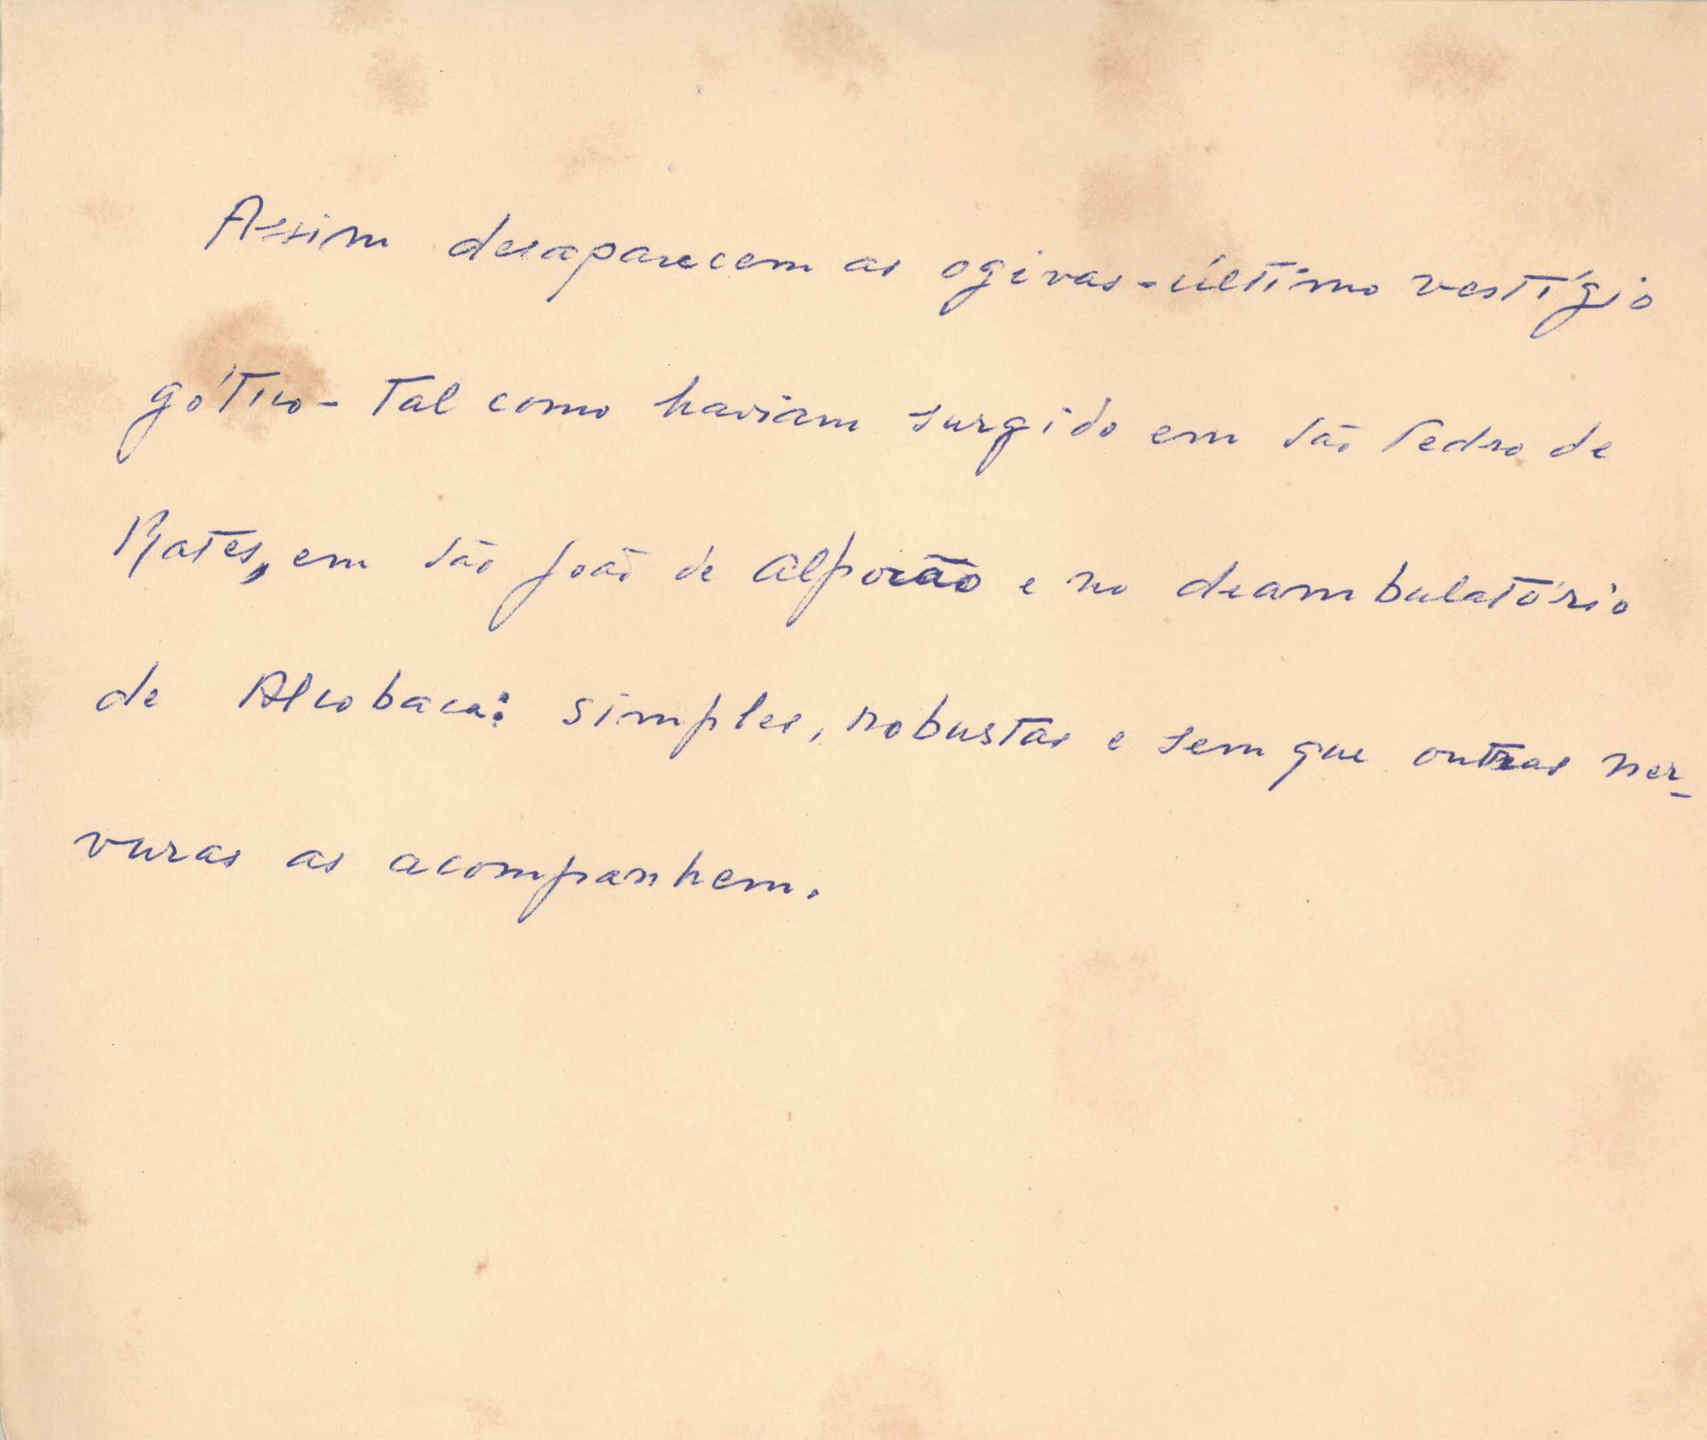 Assim desaparecem as ogivas - último vestígio
gótico - tal como haviam surgido em São Pedro de
Rates, em São João de Alporão e no deambulatório
de Alcobaca: simples, robustas e sem que outras ner-
vuras as acompanhem.